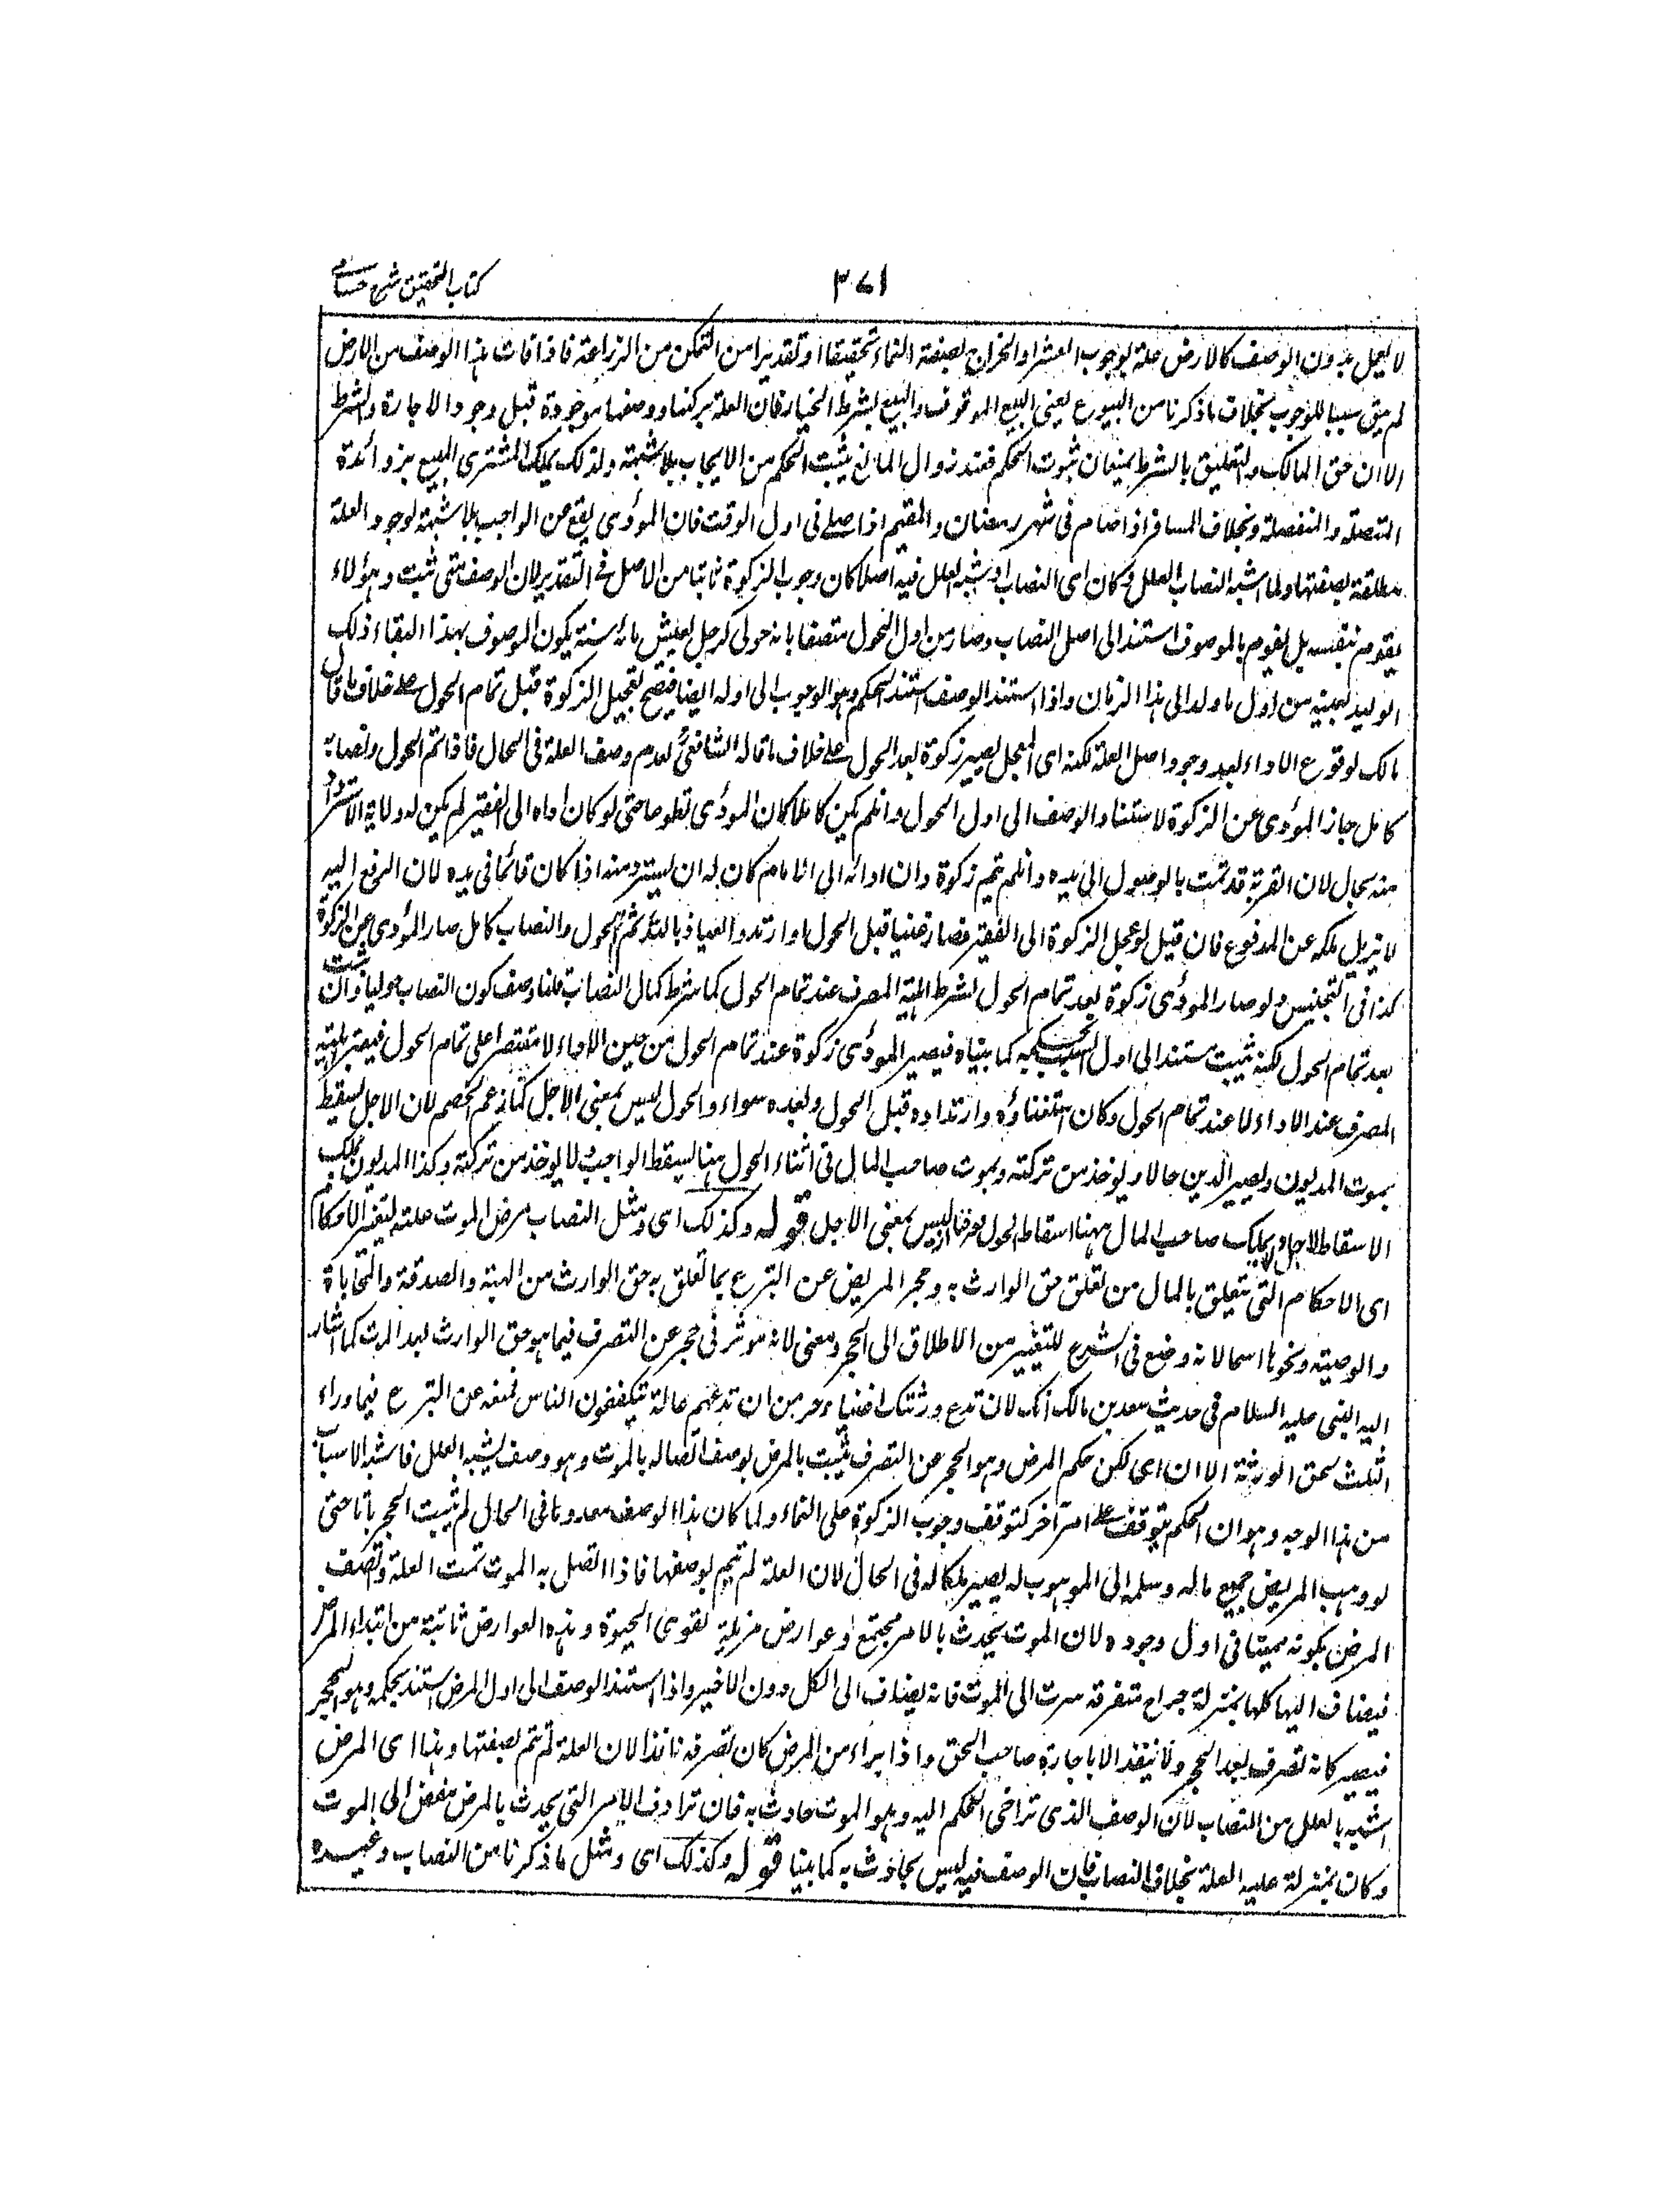 كتاب التحقيق شرح حسامی
٣٧١
لا يعمل بدون الوصف كالارض علة لوجوب العشر والخراج بصفة النماء تحقيقا او تقديرا من التمكن من الزراعة فاذا فات هذا الوصف من الارض
لم يبق سببا للوجوب بخلاف ما ذكرنا من البيوع يعنى البيع الموقوف والبيع بشرط الخيار فان العلة بركنها ووصفها موجودة قبل وجود الاجازة والشرط
الا ان حق المالك والتعليق بالشرط يمنعان ثبوت الحكم فعند زوال المانع يثبت الحكم من الايجاب بلا شبهة ولذلك يملك المشترى المبيع بزوائدة
المتصلة والمنفصلة وبخلاف المسافر اذا صام فى شهر رمضان والمقيم اذا صلے فى اول الوقت فان المؤدى يقع عن الواجب بلا شبهة لوجود العلة
مطلقة بصفتها ولما اشبه النصاب العلل وكان اى النصاب او شبه العلل فيه اصلا كان وجوب الزكوة ثابتا من الاصل فے التقدير لان الوصف متى ثبت وهؤلاء
يقوم بنفسه بل يقوم بالموصوف استند الى اصل النصاب وصار من اول الحول متصفا بانه حولى كرجل يعيش مائة سنة يكون الموصوف بهذا البقاء ذلك
الوليد بعينه من اول ما ولد الى هذا الزمان واذا استند الوصف استند الحكم وهو الوجوب الى اوله ايضا فيصح تعجيل الزكوة قبل تمام الحول علے خلاف ما قال
مالك لوقوع الاداء بعد وجود اصل العلة لكنه اى المعجل يصير زكوة بعد الحول علے خلاف ما قاله الشافعىؒ لعدم وصف العلة فى الحال فاذا تم الحول ونصابه
كامل جاز المؤدى عن الزكوة لاستناد الوصف الى اول الحول وان لم يكن كاملا كان المؤدى تطوعا حتى لو كان اداه الى الفقير لم يكن له ولاية الاسترداد
منه بحال لان القربة قد تمت بالوصول الى يده وان لم يتم زكوة وان اداه الى الامام كان له ان يسترد منه اذا كان قائما فى يده لان الدفع اليه
لا يزيل ملكه عن المدفوع فان قيل لو عجل الزكوة الى الفقير فصار غنيا قبل الحول او ارتد والعياذ بالله ثم تم الحول والنصاب كامل صار المؤدى عن الزكوة
كذا فى التجنيس ولو صار المؤدى زكوة بعد تمام الحول لشرط اهلية المصرف عند تمام الحول كما شرط كمال النصاب قلنا وصف كون النصاب حوليا وان يثبت
بعد تمام الحول لكنه يثبت مستندا الى اول السبب كما بيناه فيصير المؤدى زكوة عند تمام الحول من حين الاداء لا مقتصرا على تمام الحول فيعتبر اهلية
المصرف عند الاداء لا عند تمام الحول وكان استغناؤه وارتداده قبل الحول وبعده سواء والحول ليس بمعنى الاجل كما زعم الخصم لان الاجل يسقط
بموت المديون ويصير الدين حالا ويوخذ من تركته وبموت صاحب المال فى اثناء الحول هنا يسقط الواجب ولا يوخذ من تركته وكذا المديون يملك
الاسقاط الاجل ولا يملك صاحب المال ههنا اسقاط الحول فعرفنا انه ليس بمعنى الاجل قوله وكذلك اى ومثل النصاب مرض الموت علة لتغير الاحكام
اى الاحكام التى تتعلق بالمال من تعلق حق الوارث به وحجر المريض عن التبرع بما تعلق به حق الوارث من الهبة والصدقة والمحاباة
والوصية ونحوها اسما لانه وضع فى الشرع للتغيير من الاطلاق الى الحجر ومعنى لانه موثر فى حجر عن التصرف فيما هو حق الوارث بعد الموت كما اشار
اليه النبى عليه السلام فى حديث سعد بن مالك انك لان تدع ورثتك اغنياء خير من ان تدعهم عالة يتكففون الناس فمنعه عن التبرع فيما وراء
الثلث لحق الورثة الا ان اى لكن حكم المرض وهو الحجر عن التصرف يثبت بالمرض بوصف اتصاله بالموت وهو وصف يشبه العلل فاشبه الاسباب
من هذا الوجه وهو ان الحكم يتوقف علے امر آخر كتوقف وجوب الزكوة على النماء ولما كان هذا الوصف معدوما فى الحال لم يثبت الحجر باتا حتى
لو وهب المريض جميع ماله وسلمه الى الموهوب له يصير ملكا له فى الحال لان العلة لم يتم بوصفها فاذا اتصل به الموت تمت العلة واتصف
المرض بكونه مميتا فى اول وجوده لان الموت يحدث بآلام مجتمع وعوارض مزيلة لقوى الحيوة وهذه العوارض ثابتة من ابتداء المرض
فيضاف اليها كلها بمنزلة جراح متفرقة سرت الى الموت فانه يضاف الى الكل دون الاخير واذا استند الوصف الى اول المرض استند بحكمه وهو الحجر
فيصير كانه تصرف بعد الحجر ولا ينفذ الا باجازة صاحب الحق واذا براء من المرض كان تصرفه نافذا لان العلة لم تتم بصفتها وهذا اى المرض
اشبه بالعلل من النصاب لان الوصف الذى تراخى الحكم اليه وهو الموت حادث به فان ترادف الآلام التى يحدث بالمرض مفض الى الموت
وكان بمنزلة علية العلة بخلاف النصاب فان الوصف فيه ليس بحادث به كما بينا قوله وكذلك اى ومثل ما ذكرنا من النصاب وغيره